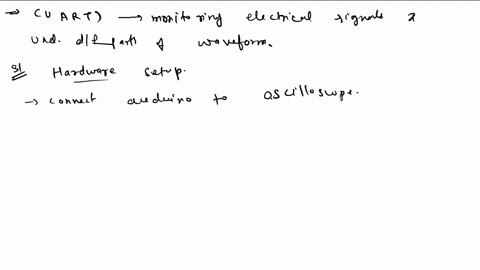 → (UART) → monitoring electrical signals &
und. diff parts of waveform.
S1 Hardware setup.
→ connect arduino to oscilloscope.